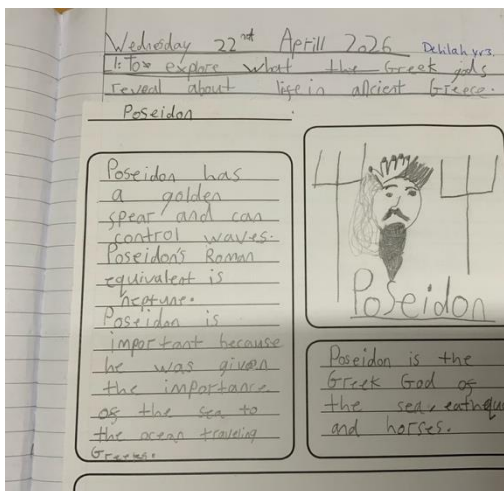 Wednesday 22nd Aprill 2026 Delilah yr3.
l: To explore what the Greek gods
reveal about life in ancient Greece.
Poseidon
Poseidon has
a golden
spear and can
control waves.
Poseidon's Roman
equivalent is
neptune.
Poseidon is
important because
he was given
the importance
of the sea to
the ocean traveling
Greeks.
Poseidon
Poseidon is the
Greek God of
the sea,
and horses.